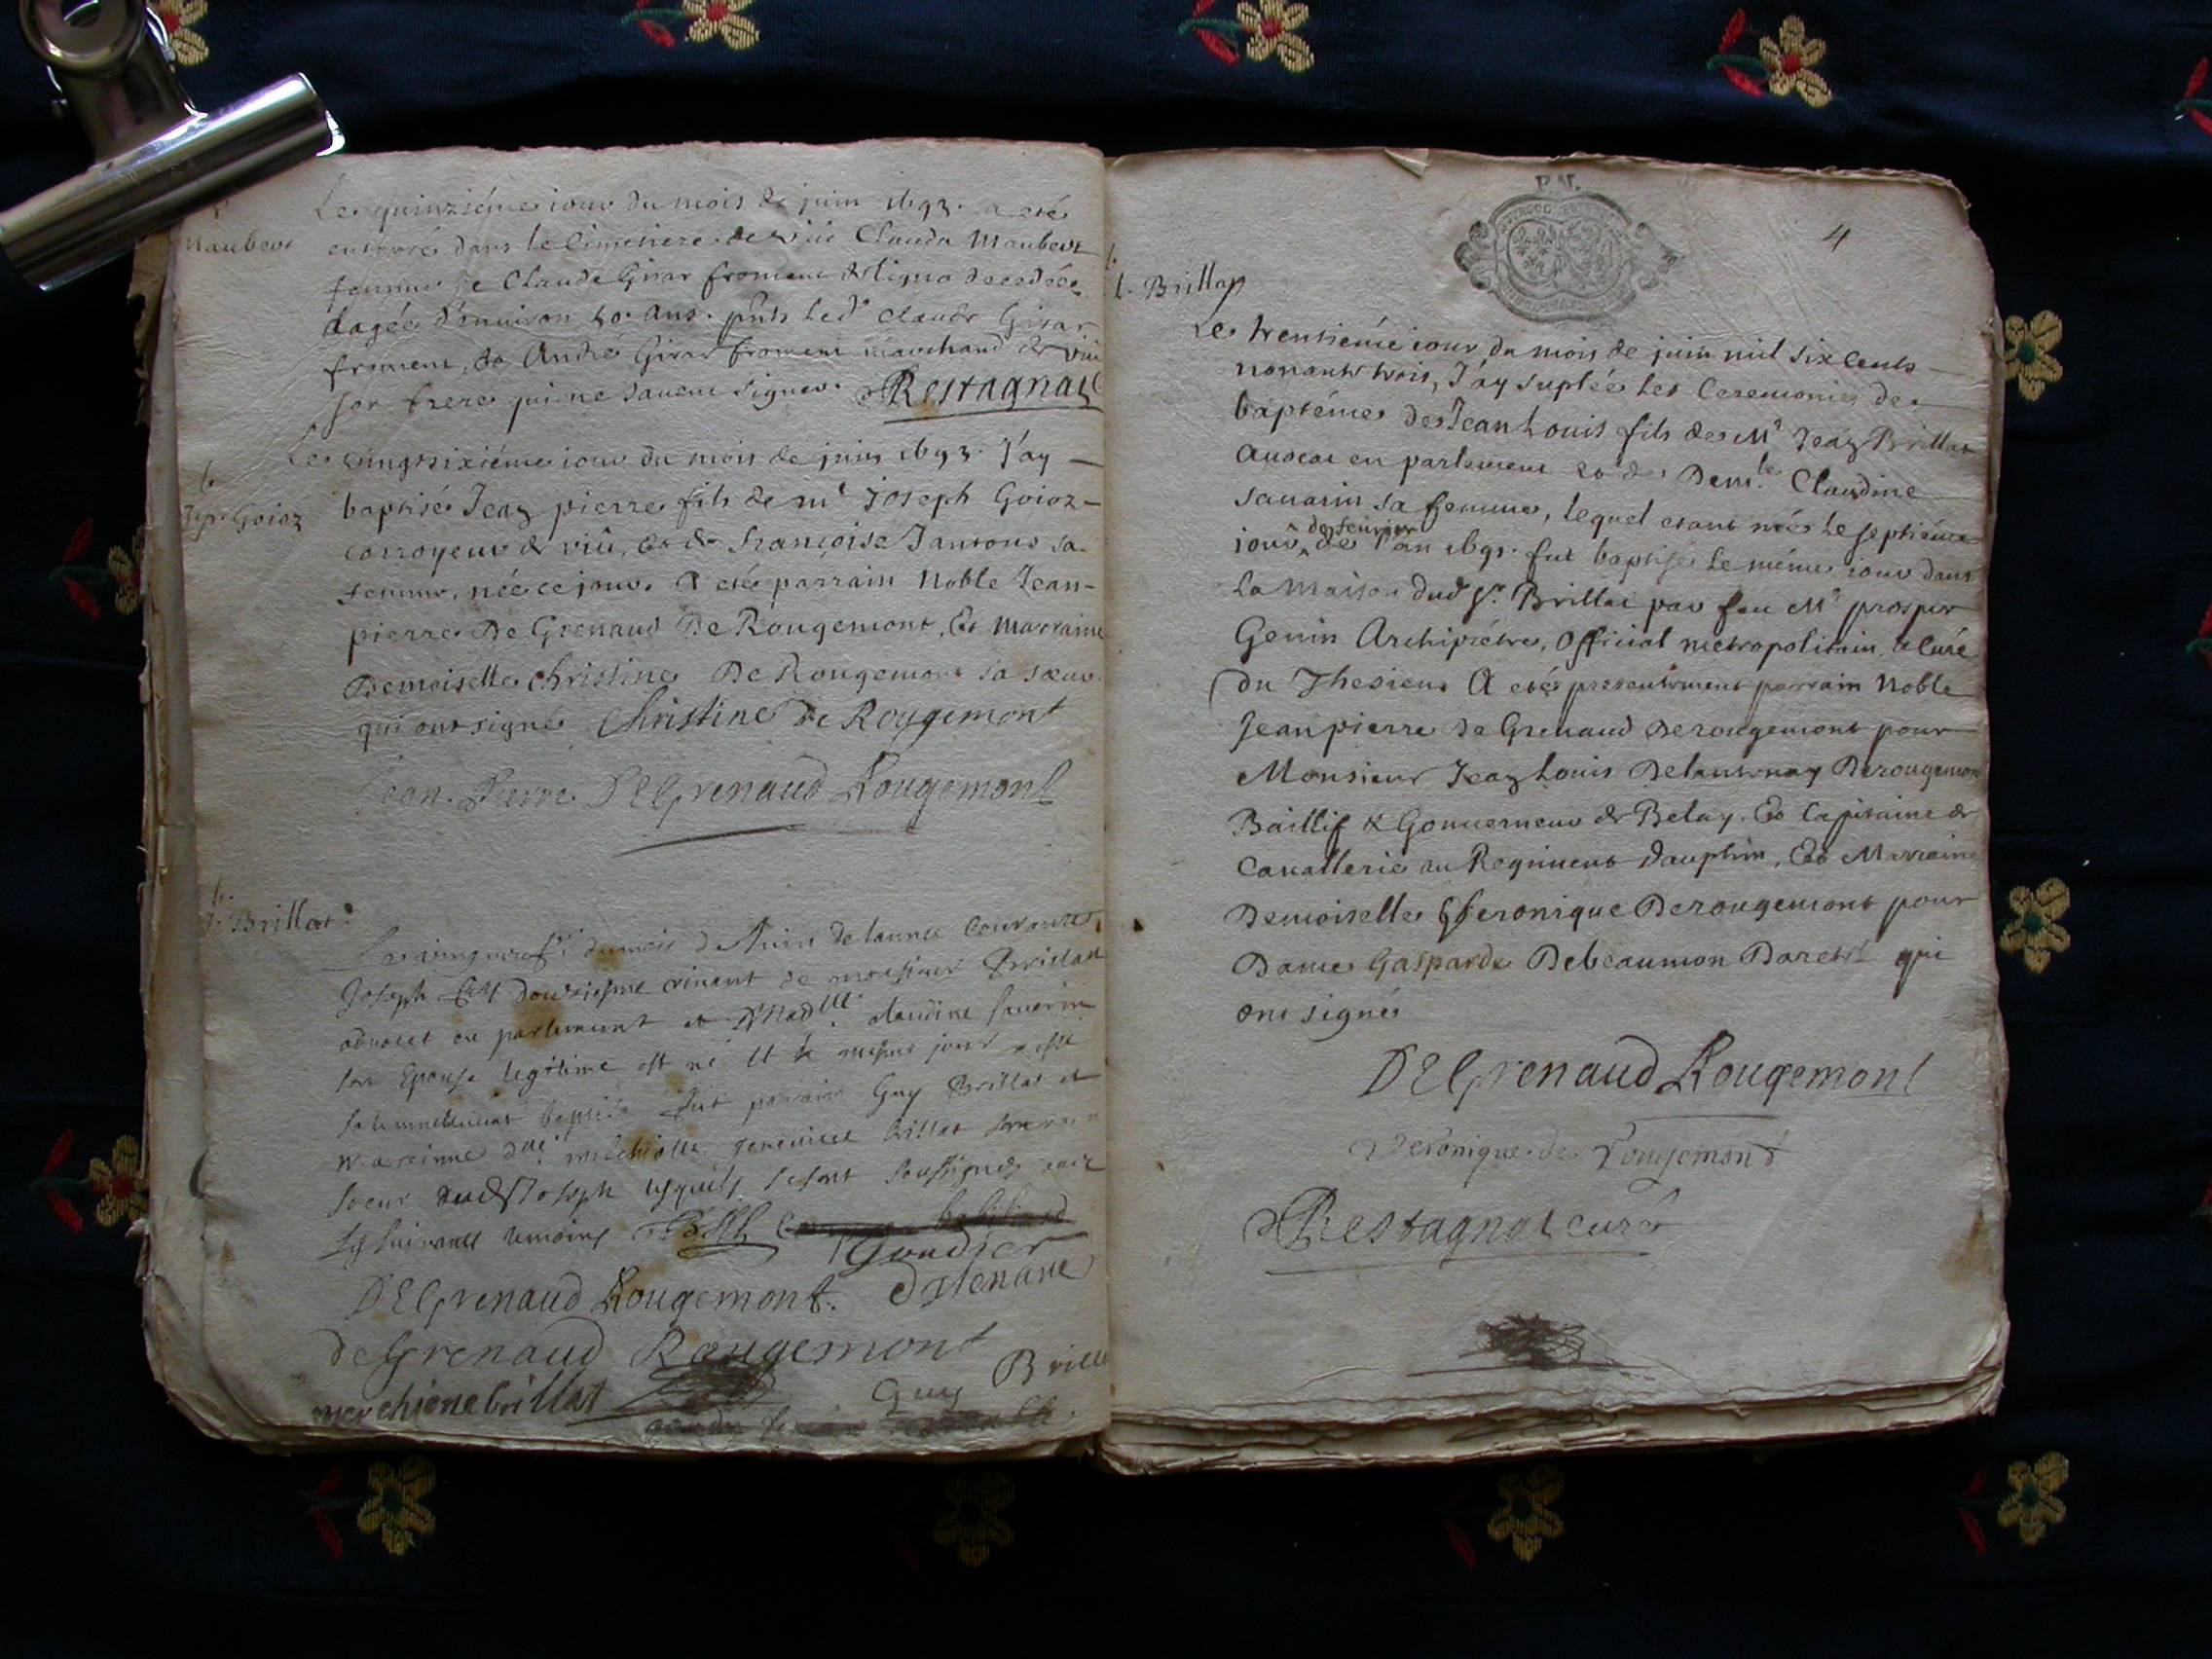 Maubert
Le quinziéme iour du mois de juin 1693. a esté
enterré dans le Cimetiere de viû Clauda Maubert
femme de Claude Girar froment décédée
âagée d'enuiron 50. ans. pñts led' Claude Girar
froment, & André Girar froment marchand de viû
son frere qui ne sauent signer. Restagnat
b
J. p. Goioz
Le vingtsixiéme iour du mois de juin 1693. J'ay
baptisé Jean pierre fils de mr Joseph Goioz
corroyeur de viû, & de françoise Jantons sa
femme, né ce jour. A esté parrain Noble Jean-
pierre De Grenaud De Rougemont, Et marraine
Demoiselle Christine De Rougemont sa sœur.
qui ont signé Christine de Rougemont
Jean Pierre DEGrenaud Rougemont
b.
J. Brillat
Le vingneuf du mois de Juin de lannee Courante
Joseph douziesme viuant de monsieur Brillat
aduocat en parlement et Madlle claudine sauerin
son Epouse legitime est né et le mesme jour
solemnellement baptisé fut parrain Guy Brillat et
mareinne dlle melchiotte geneuieue brillat
soeur dud Joseph lesquels se sont soussignés auec
les suiuants temoins
Goudier
DEGrenaud Rougemont.
deGrenaud Rougemont
Guy Brillat
merchione brillat
4
b.
L. Brillat
Le trentiéme iour du mois de juin mil six cents
nonante trois, J'ay suplée les Ceremonies de
baptéme de Jean Louis fils de Mr Jean Brillat
Auocat en parlement & de Demlle Claudine
sauarin sa femme, lequel etant né le septiéme
iour de feurier de l'an 1691. fut baptisé le méme iour dans
la maison dud Sr. Brillat par feu Mr prosper
Genin Archiprétre, Official métropolitain, & Curé
du Thesieu. A esté presentement parrain Noble
Jean pierre de Grenaud Derougemont pour
Monsieur Jean Louis Delantenay Derougemont
Baillif & Gouuerneur de Belay. Et Capitaine de
Cauallerie au Regiment dauphin, Et Marraine
Demoiselle Veronique Derougemont pour
Dame Gasparde Debeaumon qui
ont signé
DEGrenaud Rougemont
Veronique de Rougemont
Restagnat curé